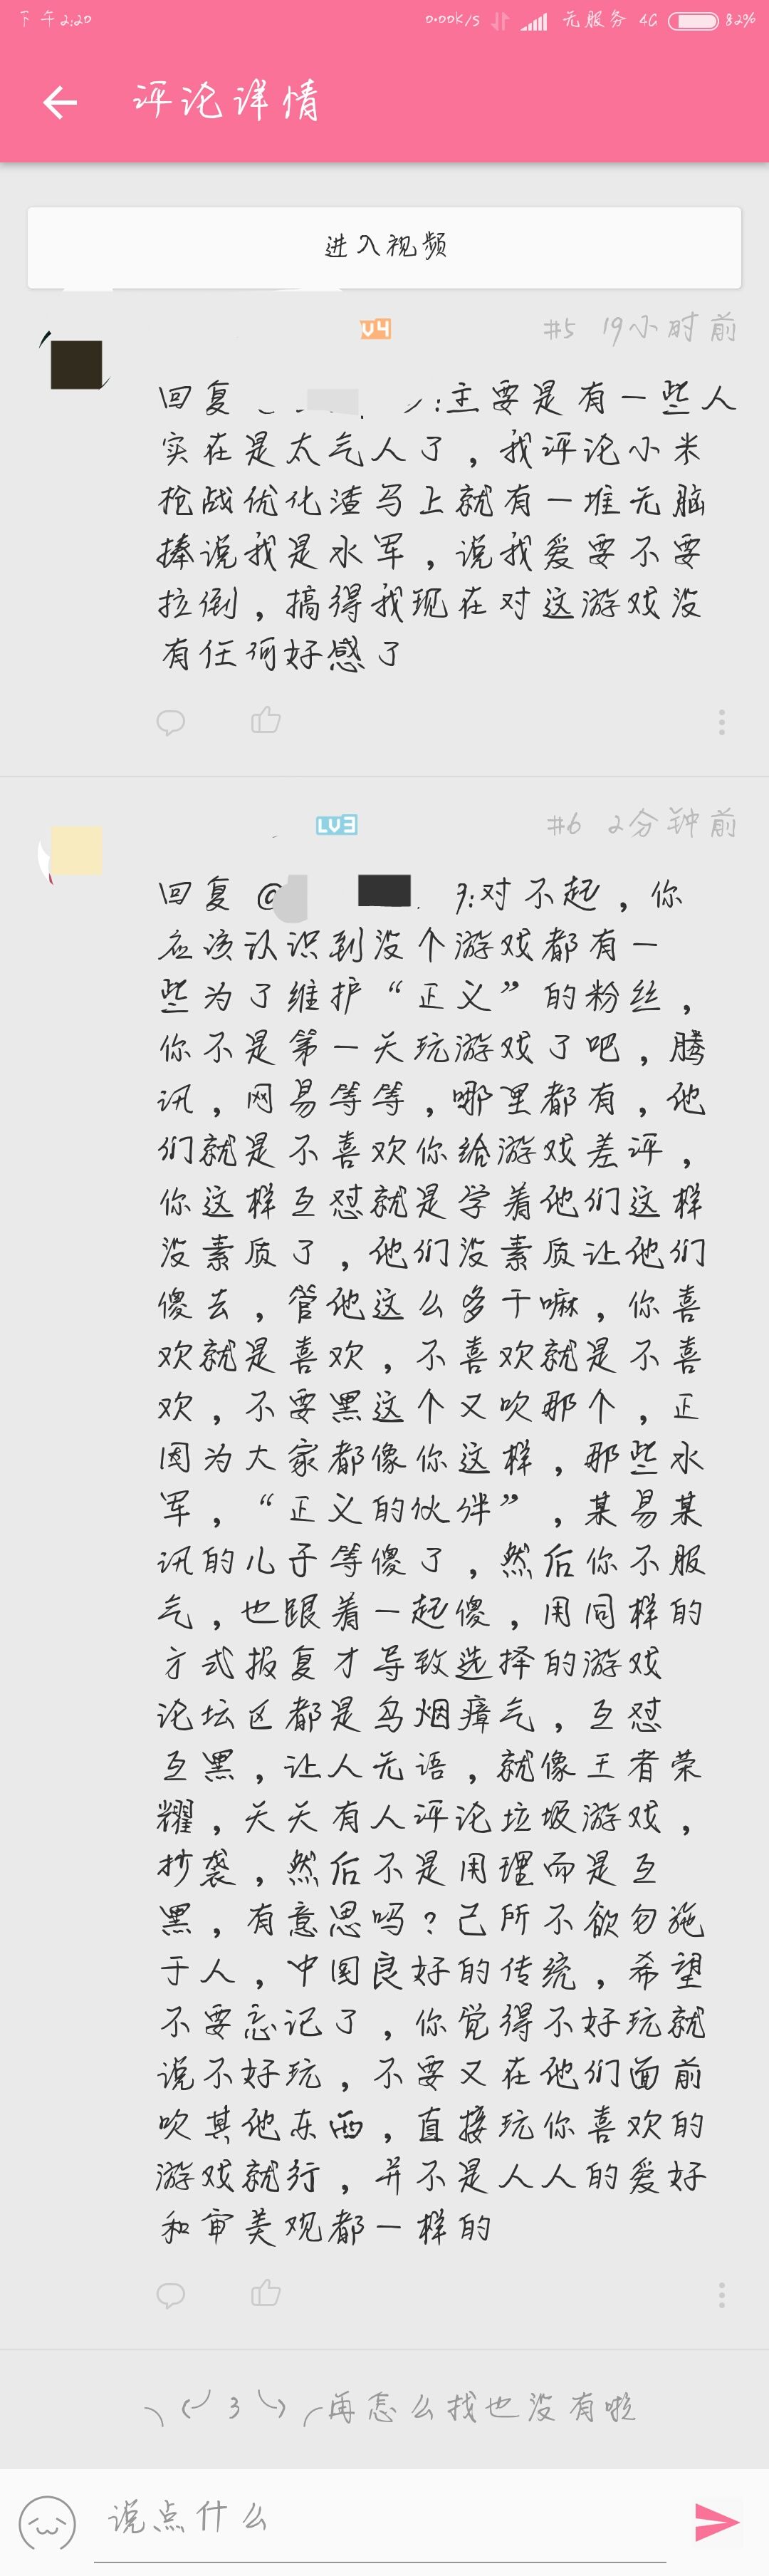 下午2:20
0.00K/S 无服务 4G 82%
评论详情
进入视频
LV4
#5 19小时前
回复 :主要是有一些人
实在是太气人了，我评论小米
枪战优化渣马上就有一堆无脑
捧说我是水军，说我爱要不要
拉倒，搞得我现在对这游戏没
有任何好感了
LV3
#6 2分钟前
回复 @ 9:对不起，你
应该认识到没个游戏都有一
些为了维护“正义”的粉丝，
你不是第一天玩游戏了吧，腾
讯，网易等等，哪里都有，他
们就是不喜欢你给游戏差评，
你这样互怼就是学着他们这样
没素质了，他们没素质让他们
傻去，管他这么多干嘛，你喜
欢就是喜欢，不喜欢就是不喜
欢，不要黑这个又吹那个，正
因为大家都像你这样，那些水
军，“正义的伙伴”，某易某
讯的儿子等傻了，然后你不服
气，也跟着一起傻，用同样的
方式报复才导致选择的游戏
论坛区都是乌烟瘴气，互怼
互黑，让人无语，就像王者荣
耀，天天有人评论垃圾游戏，
抄袭，然后不是用理而是互
黑，有意思吗？己所不欲勿施
于人，中国良好的传统，希望
不要忘记了，你觉得不好玩就
说不好玩，不要又在他们面前
吹其他东西，直接玩你喜欢的
游戏就行，并不是人人的爱好
和审美观都一样的
╮(╯3╰)╭再怎么找也没有啦
说点什么